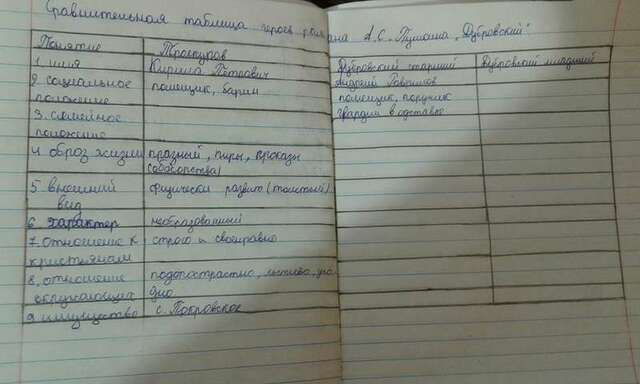 Сравнительная таблица героев романа А.С. Пушкина „Дубровский".
Понятие Троекуров Дубровский старший Дубровский младший
1. имя Кирила Петрович Андрей Гаврилов
2. социальное помещик, барин помещик, поручик
положение гвардии в отставке
3. семейное
положение
4 образ жизни празный, пиры, проказы
5 внешний физически развит (толстый)
вид
6 характер необразованный
7. отношение к строго и своенравно
крестьянам
8. отношение подопострастно, льстиво,
окружающих
9 имущество с. Покровское